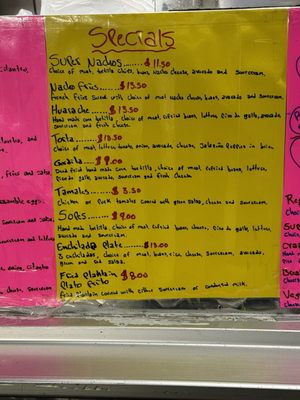 Specials
Super Nachos...... $11.50
choice of meat, tortilla chips, beans, nacho cheese, avocado and sourcream.
Nacho Fries...... $13.50
French Fries served with choice of meat nacho cheese, beans, avocado and sourcream.
Huarache...... $13.50
Hand made corn tortilla, choice of meat, refried beans, lettuce, Pico de gallo, avocado,
sourcream and fresh cheese.
Torta...... $13.50
choice of meat, lettuce, tomato, onion, avocado, cheese, Jalapeño Peppers in brin.
Gordita...... $9.00
Deed Fried hand made corn tortilla, choice of meat, refried beans, lettuce,
Pico de gallo, avocado, sourcream and fresh cheese.
Tamales...... $3.50
Chicken or Pork tamales covered with green salsa, cheese and sourcream.
Sopes...... $9.00
Hand made tortilla, choice of meat, refried beans, cheese, Pico de gallo, lettuce,
avocado and sourcream.
Enchilada Plate...... $13.00
3 enchiladas, choice of meat, beans, rice, cheese, sourcream, avocado,
green and red salsa.
Fried Plantain $8.00
Plato Frito
Fried plantain covered with either sourcream or condensed milk.